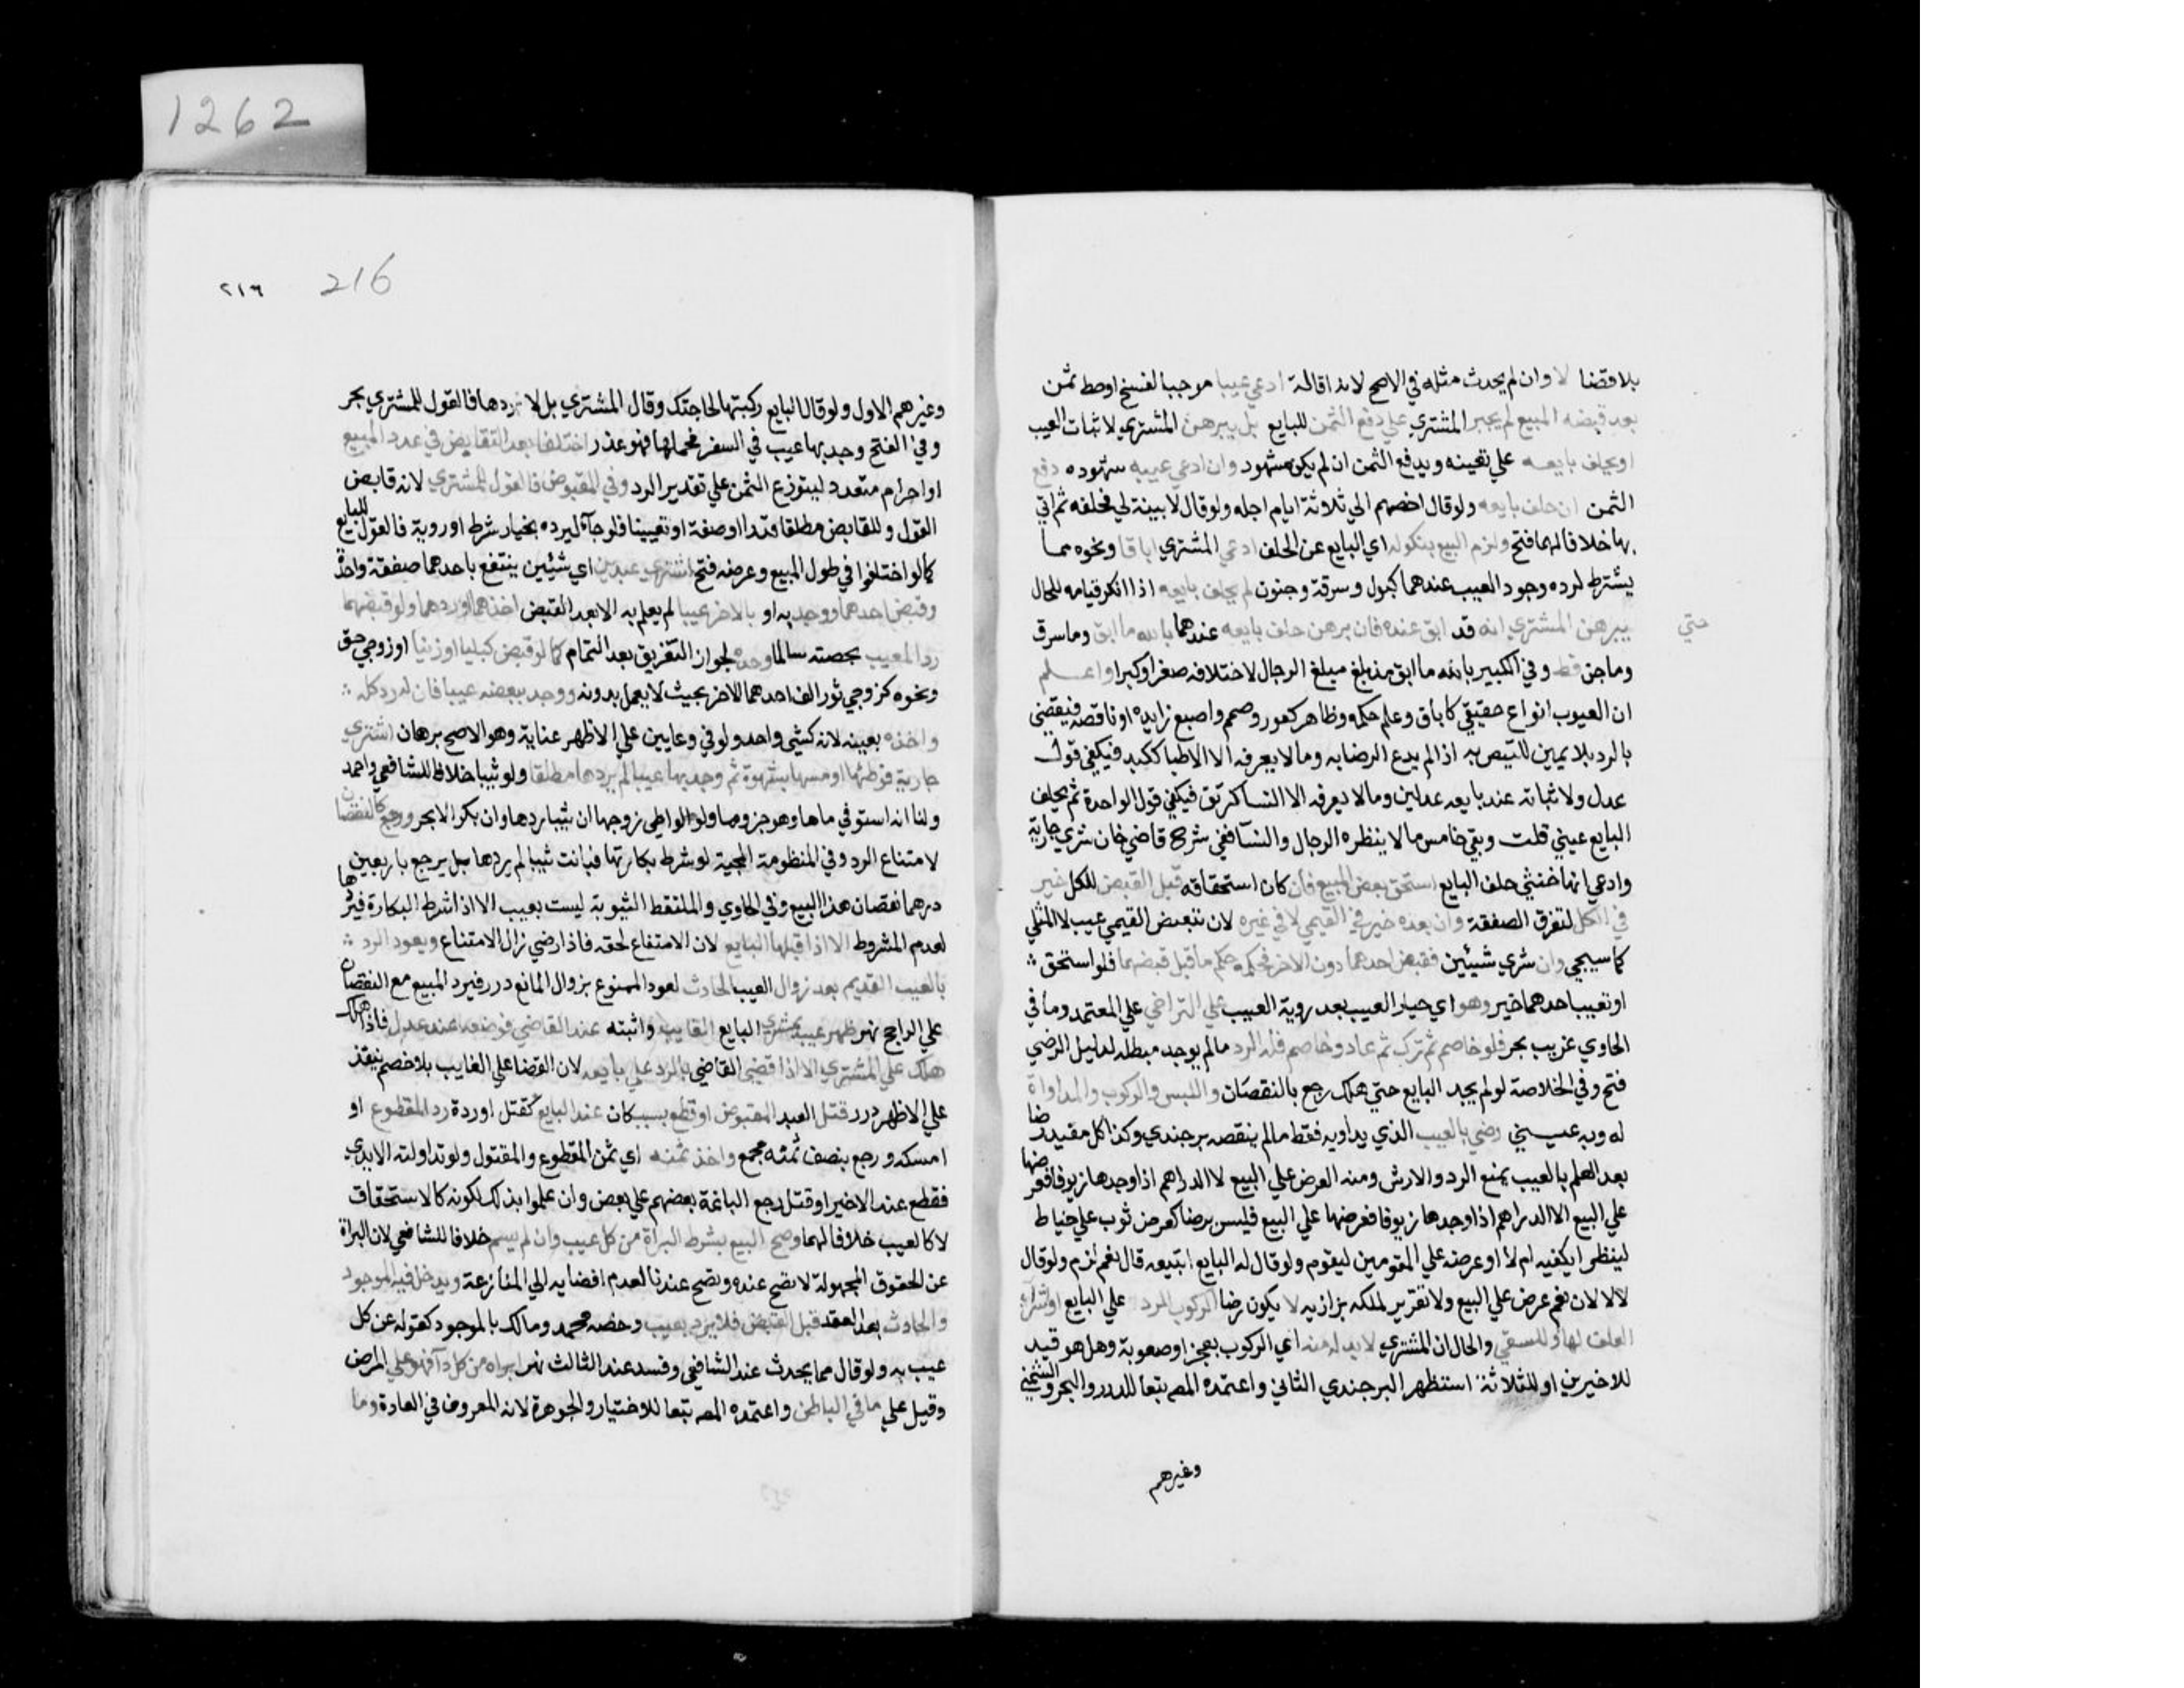 1262
بلا قضا لا وان لم يحدث مثله في الاصح لانه اقالة ادعي عيبا موجبا لفسخ او حط ثمن
بعد قبضه المبيع لم يجبر المشتري علي دفع الثمن للبايع بل يبرهن المشتري لاثبات العيب
او يحلف بايعه علي نفيه ويدفع الثمن ان لم يكن شهود وان ادعي غيبه شهوده دفع
الثمن ان حلف بايعه ولو قال احضرهم الي ثلاثة ايام اجله ولو قال لا بينة لي فحلفه ثم اتي
بها خلافا لهما فتح ولزم البيع بنكوله اي البايع عن الحلف ادعي المشتري اباقا ونحوه مما
يشترط لرده وجود العيب عندهما كبول وسرقة وجنون لم يحلف بايعه اذا انكر قيامه للحال
حتي
يبرهن المشتري انه قد ابق عنده فان برهن حلف بايعه عندهما بالله ما ابق وما سرق
وما جن قط وفي الكبير بالله ما ابق مذ بلغ مبلغ الرجال لاختلافه صغرا وكبرا واعلم
ان العيوب انواع حقيقي كاباق وعلم حكمه وظاهر كعور وصمم واصبع زايدة او ناقصة فيقضي
بالرد بلا يمين للتيقن به اذا لم يدع الرضا به وما لا يعرفه الا الاطبا ككبد فيكفي قول
عدل ولاثباته عند بايعه عدلين وما لا يعرفه الا النسا كرتق فيكفي قول الواحدة ثم يحلف
البايع عيني قلت وبقي خامس ما لا ينظره الرجال والنسآ ففي شرح قاضي خان شري جارية
وادعي انها خنثي حلف البايع استحق بعض المبيع فان كان استحقاقه قبل القبض للكل خير
في الكل لتفرق الصفقة وان بعده خير في القيمي لا في غيره لان تبعيض القيمي عيب لا المثلي
كما سيجي وان شري شيئين فقبض احدهما دون الاخر فحكمه حكم ما قبل قبضهما فلو استحق
او تعيب احدهما خير وهو اي خيار العيب بعد روية العيب علي التراخي علي المعتمد وما في
الحاوي غريب بحر فلو خاصم ثم ترك ثم عاد وخاصم فله الرد مالم يوجد مبطله لدليل الرضي
فتح وفي الخلاصة لو لم يجد البايع حتي هلك رجع بالنقصان واللبس والركوب والمداواة
له وبه عيني رضي بالعيب الذي يداويه فقط مالم ينقصه برجندي وكذا كل مفيد رضا
بعد العلم بالعيب يمنع الرد والارش ومنه العرض علي البيع لا الدراهم اذا وجدها زيوفا فعرضها
علي البيع الا الدراهم اذا وجدها زيوفا فعرضها علي البيع فليس برضا كعرض ثوب علي خياط
لينظر ايكفيه ام لا او عرضه علي المقومين ليقوم ولو قال له البايع اتبيعه قال نعم لزم ولو قال
لا لا لان نعم عرض علي البيع ولا تقرير لملكه بزازيه لا يكون رضا الركوب للرد علي البايع او شرآء
العلف لها وللسقي والحال ان المشتري لا بد له منه اي الركوب بعجز او صعوبة وهل هو قيد
للاخيرين او للثلاثة استظهر البرجندي الثاني واعتمده المص تبعا للدرر والبحر والشمني
وغيرهم
٢١٦ 216
وغيرهم الاول ولو قال البايع ركبتها لحاجتك وقال المشتري بل لاردها فالقول للمشتري بحر
وفي الفتح وجد بها عيب في السفر فحملها فهو عذر اختلفا بعد التقابض في عدد المبيع
او اجرام متعدد ليتوزع الثمن علي تقدير الرد وفي المقبوض فالقول للمشتري لانه قابض
القول وللقابض مطلقا قدرا او صفة او تعيينا فلو جآء ليرده بخيار شرط او روية فالقول للبايع
كما لو اختلفوا في طول المبيع وعرضه فتح اشتري عبدين اي شيئين ينتفع باحدهما صفقة واحدة
وقبض احدهما ووجد به او بالاخر عيبا لم يعلم به الا بعد القبض اخذهما او ردهما ولو قبضهما
رد المعيب بحصته سالما وحده لجواز التفريق بعد التمام كما لو قبض كيليا او وزنيا او زوجي خف
ونحوه كزوجي ثور الف احدهما للاخر بحيث لا يعمل بدونه ووجد ببعضه عيبا فان له رد كله
واخذه بعيبه لانه كشئ واحد ولو في وعايين علي الاظهر عناية وهو الاصح برهان اشتري
جارية فوطئها او مسها بشهوة ثم وجد بها عيبا لم يردها مطلقا ولو ثيبا خلافا للشافعي واحمد
ولنا انه استوفي ماها وهو جزوها ولو الواطي زوجها ان ثيبا ردها وان بكرا لا بحر ورجع بالنقصان
لامتناع الرد وفي المنظومة المحبية لو شرط بكارتها فبانت ثيبا لم يردها بل يرجع باربعين
درهما نقصان هذا البيع وفي الحاوي والملتقط الثيوبة ليست بعيب الا اذا شرط البكارة فيردها
لعدم المشروط الا اذا قبلها البايع لان الامتناع لحقه فاذا رضي زال الامتناع ويعود الرد
بالعيب القديم بعد زوال العيب الحادث لعود الممنوع بزوال المانع درر فيرد المبيع مع النقصان
علي الراجح نهر ظهر عيب بمشري البايع الغايب واثبته عند القاضي فوضعه عند عدل فاذا هلك
هلك علي المشتري الا اذا قضي القاضي بالرد علي بايعه لان القضا علي الغايب بلا خصم ينفذ
علي الاظهر درر قتل العبد المقبوض او قطع بسبب كان عند البايع كقتل او ردة رد المقطوع او
امسكه ورجع بنصف ثمنه مجمع واخذ ثمنه اي ثمن المقطوع والمقتول ولو تداولته الايدي
فقطع عند الاخير او قتل رجع الباعة بعضهم علي بعض وان علموا بذلك لكونه كالاستحقاق
لا كالعيب خلافا لهما وصح البيع بشرط البراة من كل عيب وان لم يسم خلافا للشافعي لان البراة
عن الحقوق المجهولة لا تصح عنده وتصح عندنا لعدم افضايه الي المنازعة ويدخل فيه الموجود
والحادث بعد العقد قبل القبض فلا يرد بعيب وخصه محمد ومالك بالموجود كقوله عن كل
عيب به ولو قال مما يحدث عند الشافعي وفسد عند الثالث نهر ابراه من كل دآء فهو علي المرض
وقيل علي ما في الباطن واعتمده المص تبعا للاختيار والجوهرة لانه المعروف في العادة وما